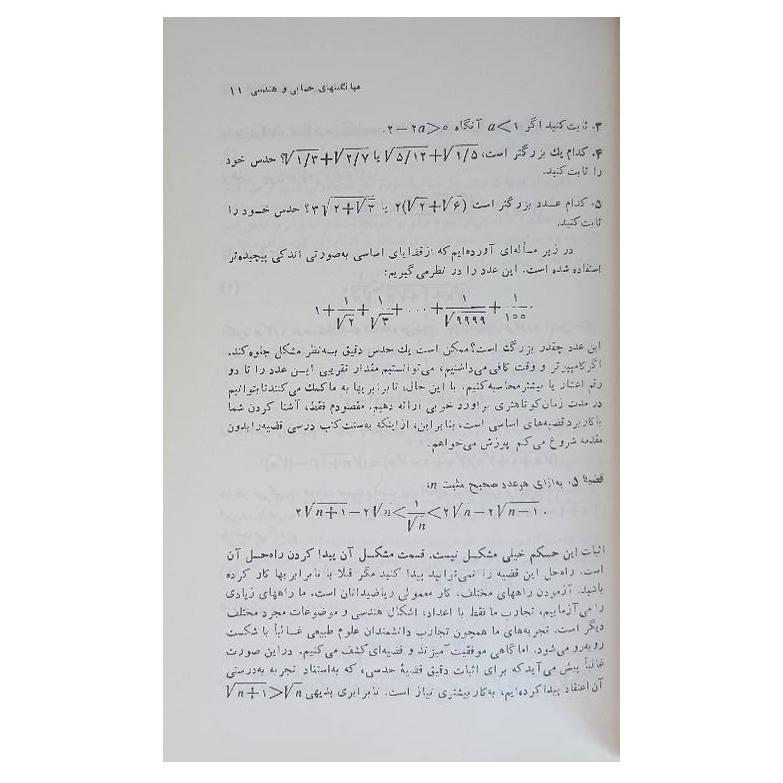 میانگینهای حسابی و هندسی ۱۱
۳. ثابت کنید اگر a<۱ آنگاه ۲−۲a>۰.
۴. کدام یك بزرگتر است، √۵/۱۲+√۱/۵ یا √۱/۳+√۲/۷؟ حدس خود
را ثابت کنید.
۵. کدام عدد بزرگتر است ۲(√۲+√۶) یا ۳√(۲+√۳)؟ حدس خود را
ثابت کنید.
در زیر مسأله‌ای آورده‌ایم که از قضایای اساسی به‌صورتی اندکی پیچیده‌تر
استفاده شده است. این عدد را در نظر می‌گیریم:
۱+۱/√۲+۱/√۳+···+۱/√۹۹۹۹+۱/۱۰۰.
این عدد چقدر بزرگ است؟ ممکن است یك حدس دقیق به‌نظر مشکل جلوه کند.
اگر کامپیوتر و وقت کافی می‌داشتیم، می‌توانستیم مقدار تقریبی این عدد را تا دو
رقم اعشار یا بیشتر محاسبه کنیم. با این حال، نابرابریها به ما کمك می‌کنند تا بتوانیم
در مدت زمان کوتاهتری برآورد خوبی ارائه دهیم. مقصودم فقط، آشنا کردن شما
با کاربرد قضیه‌های اساسی است، بنابراین، از اینکه به‌سنت کتب درسی قضیه را بدون
مقدمه شروع می‌کنم پوزش می‌خواهم.
قضیهٔ ۵. به‌ازای هر عدد صحیح مثبت n:
۲√(n+۱)−۲√n<۱/√n<۲√n−۲√(n−۱).
اثبات این حکم خیلی مشکل نیست. قسمت مشکل آن پیدا کردن راه‌حل آن
است. راه‌حل این قضیه را نمی‌توانید پیدا کنید مگر قبلا با نابرابریها کار کرده
باشید. آزمودن راههای مختلف، کار معمولی ریاضیدانان است. ما راههای زیادی
را می‌آزماییم، تجارب ما فقط با اعداد، اشکال هندسی و موضوعات مجرد مختلف
دیگر است. تجربه‌های ما همچون تجارب دانشمندان علوم طبیعی غالباً با شکست
روبه‌رو می‌شود. اما گاهی موفقیت آمیزند و قضیه‌ای کشف می‌کنیم. در این صورت
غالباً پیش می‌آید که برای اثبات دقیق قضیهٔ حدسی، که به‌استناد تجربه به‌درستی
آن اعتقاد پیدا کرده‌ایم، به‌کار بیشتری نیاز است. نابرابری بدیهی √(n+۱)>√n